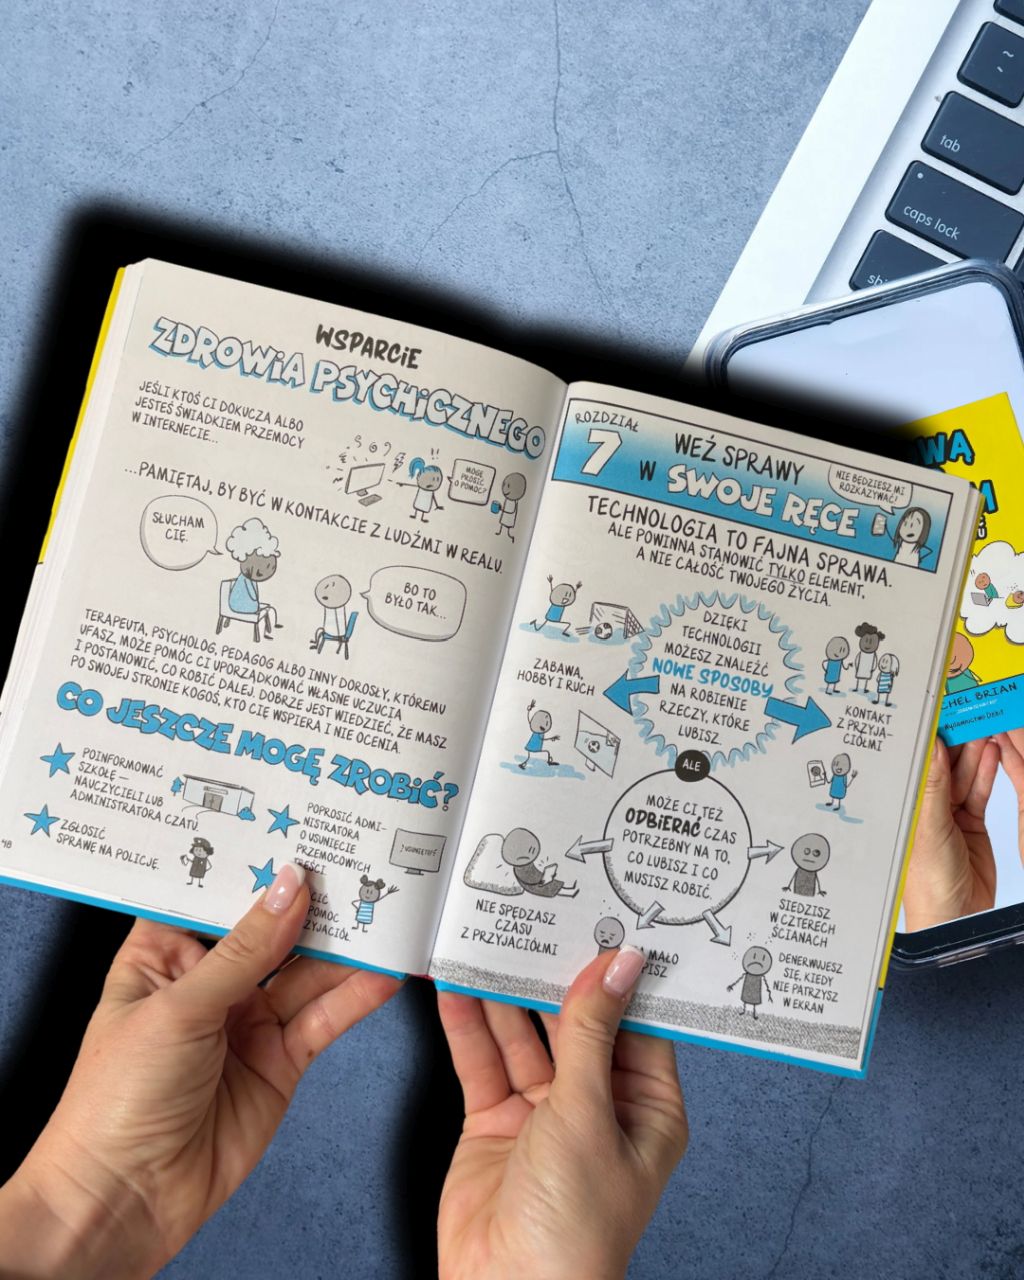 WSPARCIE
ZDROWIA PSYCHICZNEGO
JEŚLI KTOŚ CI DOKUCZA ALBO
JESTEŚ ŚWIADKIEM PRZEMOCY
W INTERNECIE...
MOGĘ
PROSIĆ
O POMOC?
...PAMIĘTAJ, BY BYĆ W KONTAKCIE Z LUDŹMI W REALU.
SŁUCHAM
CIĘ.
BO TO
BYŁO TAK...
TERAPEUTA, PSYCHOLOG, PEDAGOG ALBO INNY DOROSŁY, KTÓREMU
UFASZ, MOŻE POMÓC CI UPORZĄDKOWAĆ WŁASNE UCZUCIA
I POSTANOWIĆ, CO ROBIĆ DALEJ. DOBRZE JEST WIEDZIEĆ, ŻE MASZ
PO SWOJEJ STRONIE KOGOŚ, KTO CIĘ WSPIERA I NIE OCENIA.
CO JESZCZE MOGĘ ZROBIĆ?
POINFORMOWAĆ
SZKOŁĘ —
NAUCZYCIELI LUB
ADMINISTRATORA CZATU.
ZGŁOSIĆ
SPRAWĘ NA POLICJĘ.
POPROSIĆ ADMI-
NISTRATORA
O USUNIĘCIE
PRZEMOCOWYCH
TREŚCI.
POMÓC
48
ROZDZIAŁ
7
WEŹ SPRAWY
W SWOJE RĘCE
NIE BĘDZIESZ MI
ROZKAZYWAĆ!
TECHNOLOGIA TO FAJNA SPRAWA.
ALE POWINNA STANOWIĆ TYLKO ELEMENT,
A NIE CAŁOŚĆ TWOJEGO ŻYCIA.
DZIĘKI
TECHNOLOGII
MOŻESZ ZNALEŹĆ
NOWE SPOSOBY
NA ROBIENIE
RZECZY, KTÓRE
LUBISZ.
ZABAWA,
HOBBY I RUCH
KONTAKT
Z PRZYJA-
CIÓŁMI
ALE
MOŻE CI TEŻ
ODBIERAĆ CZAS
POTRZEBNY NA TO,
CO LUBISZ I CO
MUSISZ ROBIĆ.
NIE SPĘDZASZ
CZASU
Z PRZYJACIÓŁMI
MAŁO
SIEDZISZ
W CZTERECH
ŚCIANACH
DENERWUJESZ
SIĘ, KIEDY
NIE PATRZYSZ
W EKRAN
tab
caps lock
BRIAN